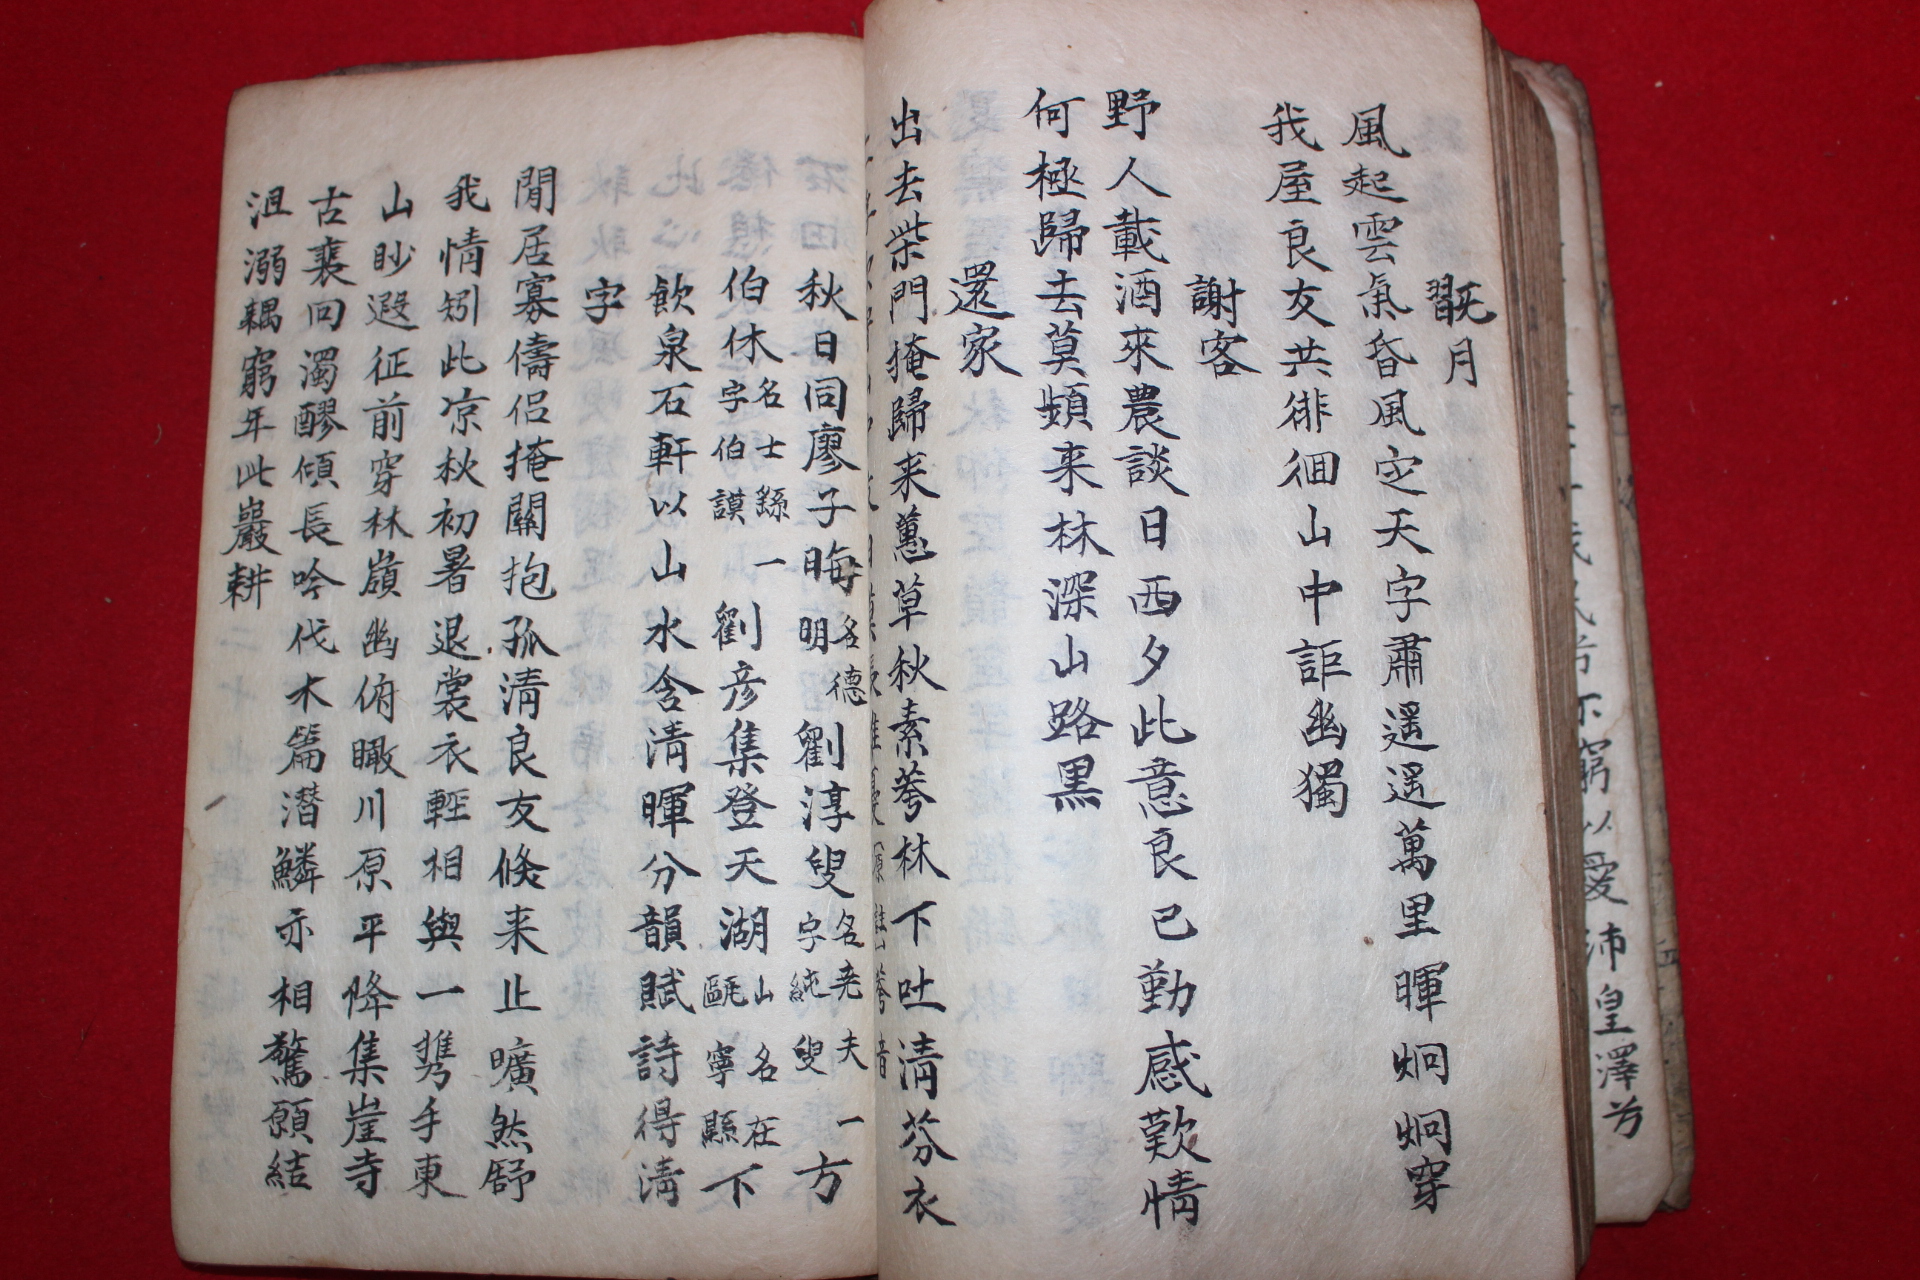 翫月
風起雲氣昏風定天字肅遥遥萬里暉炯炯穿
我屋良友共徘徊山中詎幽獨
謝客
野人載酒來農談日西夕此意良已勤感歎情
何極歸去莫頻来林深山路黑
還家
出去柴門掩歸来蕙草秋素蕚林下吐清芬衣
秋日同廖子晦名德明劉淳叟名尭夫字純叟一方
伯休名士繇一字伯謨劉彦集登天湖山名在甌寧縣下
飲泉石軒以山水含清暉分韻賦詩得清
字
閒居寡儔侣掩關抱孤清良友倐来止曠然舒
我情矧此凉秋初暑退裳衣輕相與一携手東
山眇遐征前穿林嶺幽俯瞰川原平降集崖寺
古裵回濁醪傾長吟伐木篇潛鱗亦相驚願結
沮溺耦窮年此巖耕
窮以愛沛皇澤兮